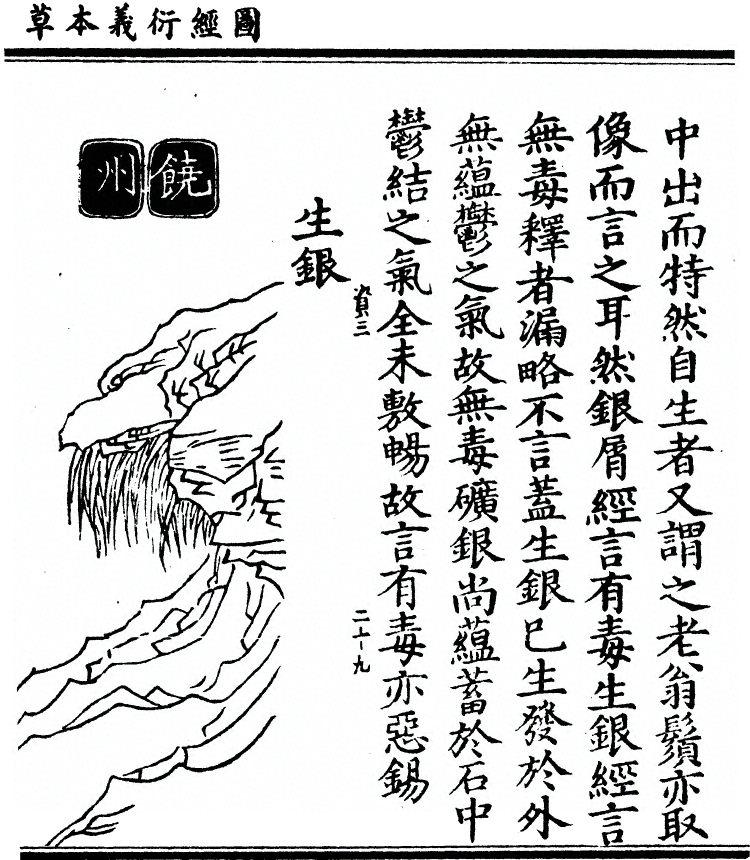 圖經衍義本草
中出而特然自生者又謂之老翁鬚亦取
像而言之耳然銀屑經言有毒生銀經言
無毒釋者漏略不言蓋生銀已生發於外
無蘊鬱之氣故無毒礦銀尚蘊蓄於石中
鬱結之氣全未敷暢故言有毒亦惡錫
資三
二十九
生銀
饒州